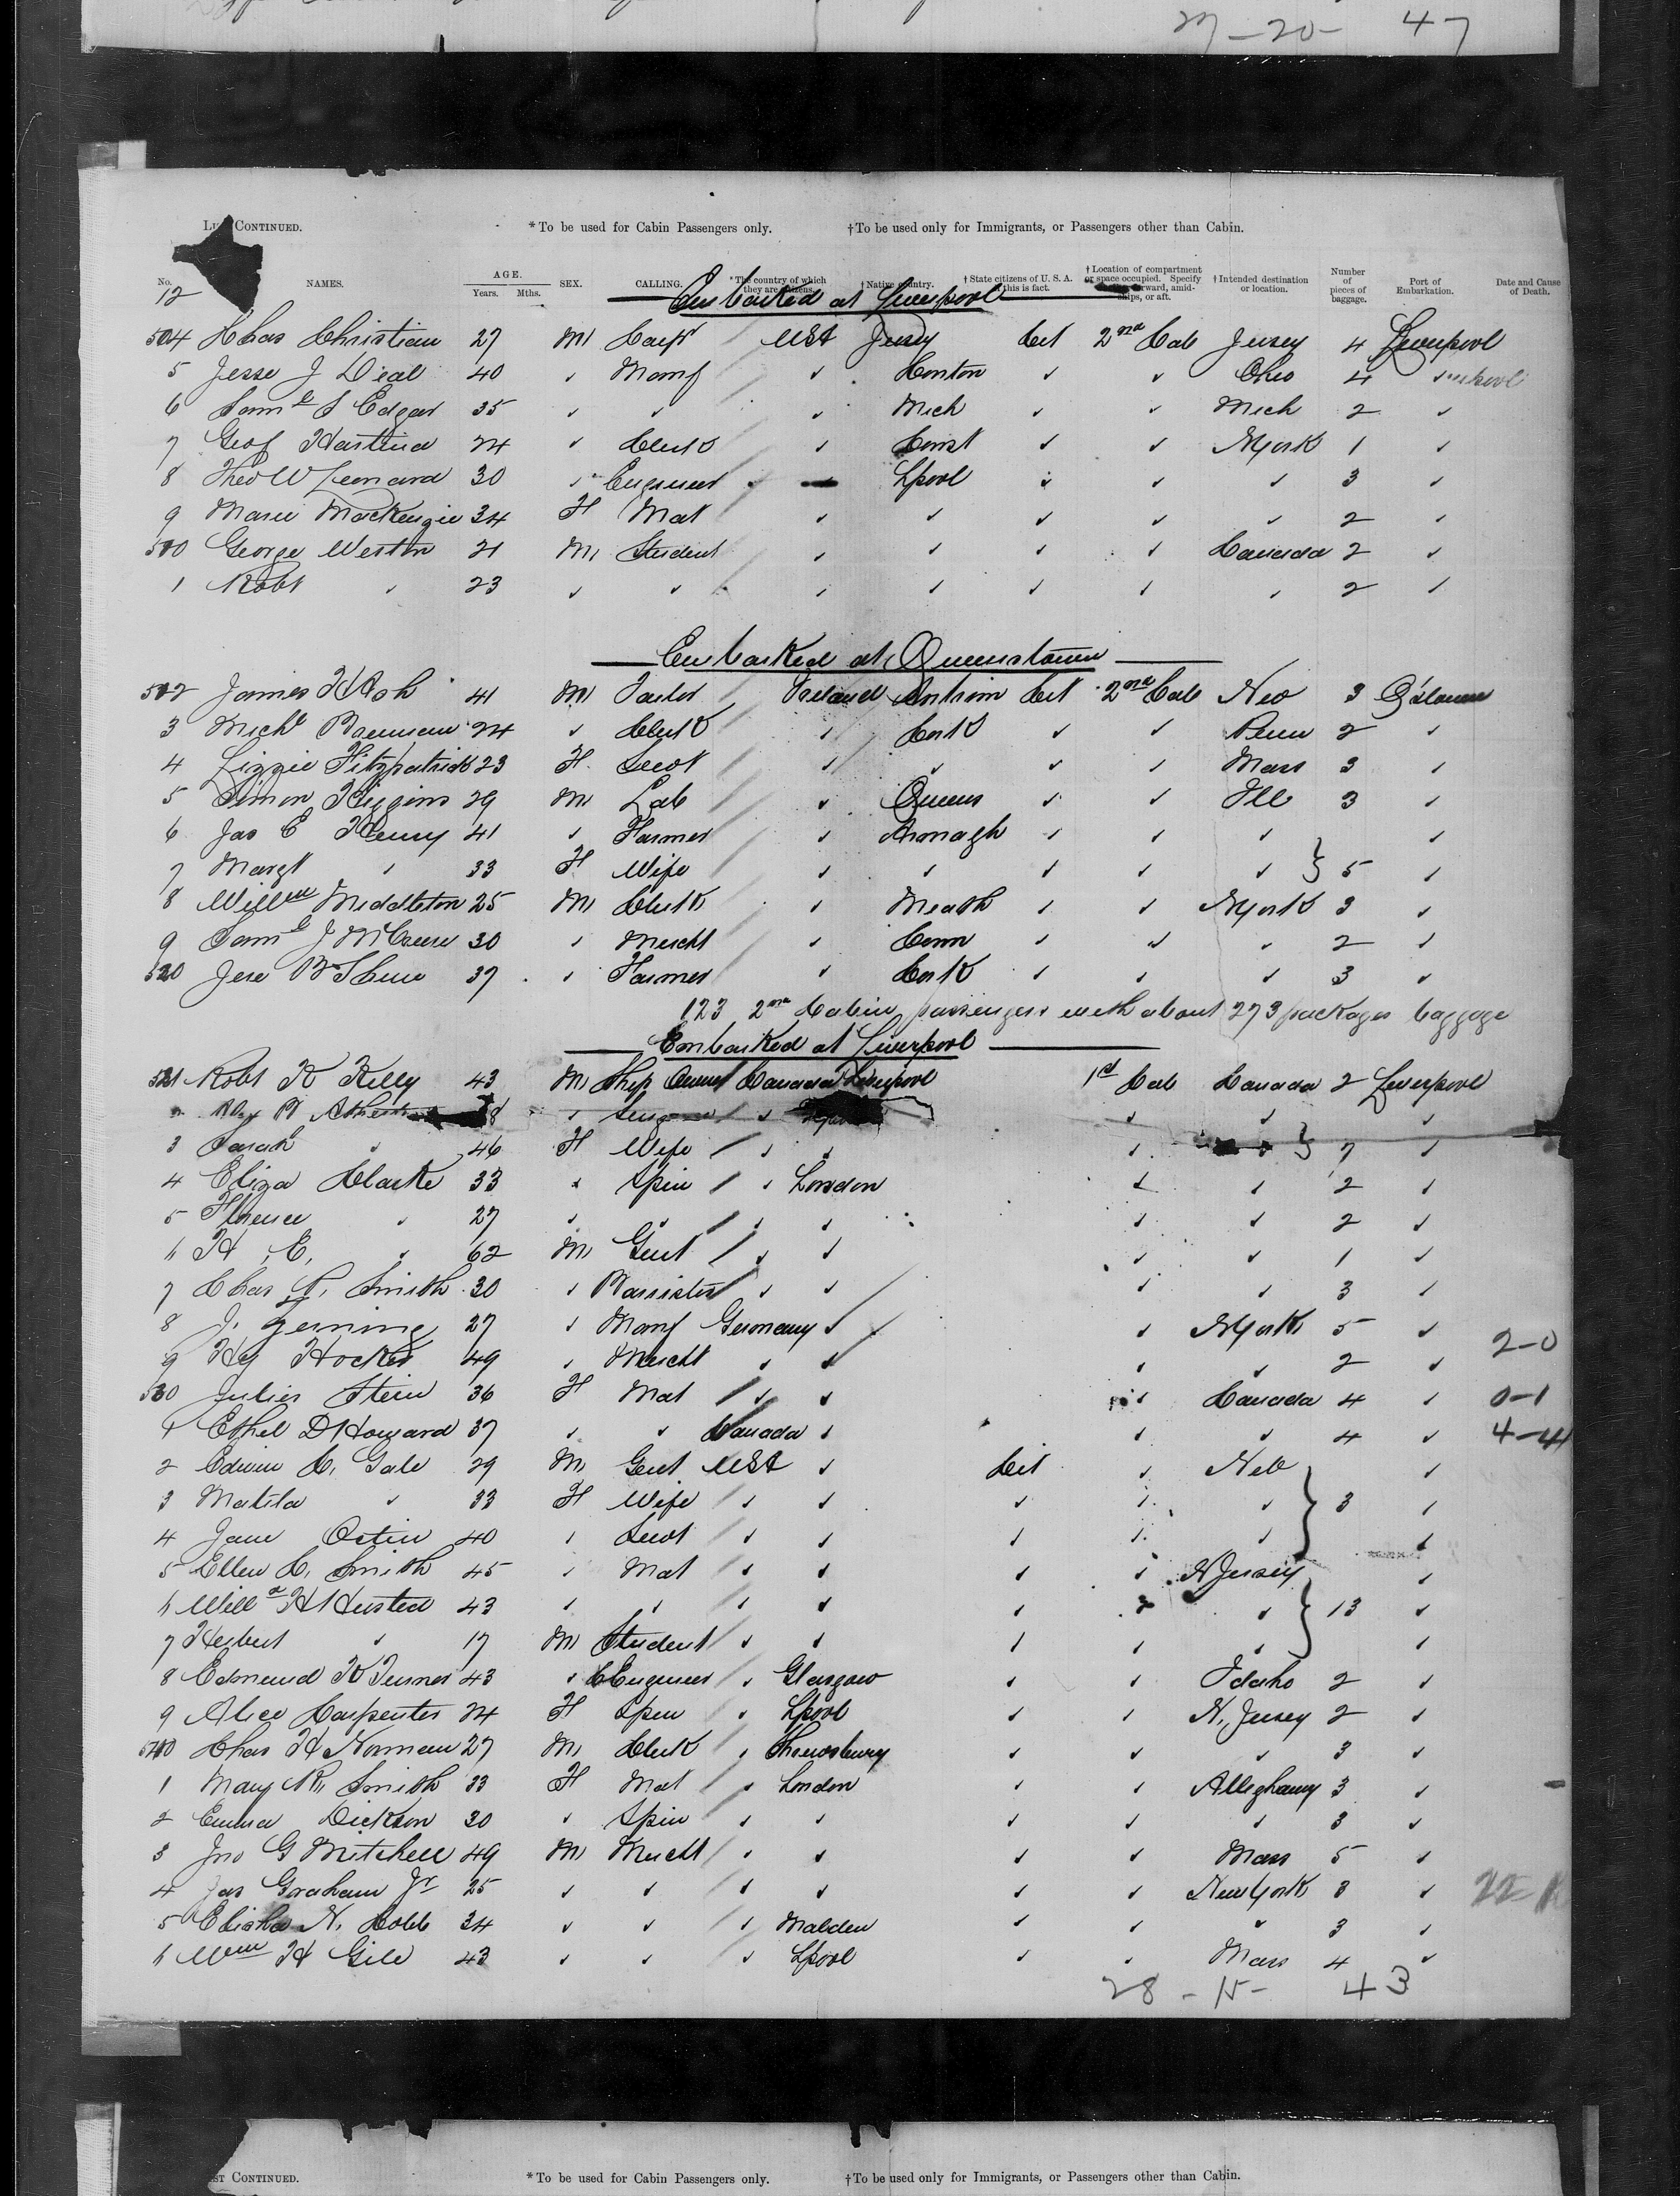 27 - 20 - 47
CONTINUED. * To be used for Cabin Passengers only. † To be used only for Immigrants, or Passengers other than Cabin.
No. NAMES. AGE. Years. Mths. SEX. CALLING. * The country of which they are citizens. † Native Country. † State citizens of U. S. A. this is fact. † Location of compartment or space occupied. Specify forward, amidships, or aft. † Intended destination or location. Number of pieces of baggage. Port of Embarkation. Date and Cause of Death.
12
Embarked at Liverpool
504 Chas Christian 27 M USA Jersey Cit 2nd Cab Jersey 4 Liverpool
5 Jesse J Deal 40 " Manf " Canton " " Ohio 4 "
6 Saml S Edgar 35 " " " Mich " " Mich 2 "
7 Geo 24 " Clerk " " " NYork 1 "
8 Theo W Leonard 30 " Engineer " Lpool " " " 3 "
9 Marie MacKenzie 34 F Mat " " " " " 2 "
510 George Weston 21 M Student " " " " Canada 2 "
1 Robt " 23 " " " " " " " 2 "
Embarked at Queenstown
512 James H Ash 41 M Tailor Ireland Antrim Cit 2nd Cab Neb 3 Q'stown
3 Michl Brennan 24 " Clerk " Cork " " Penn 2 "
4 Lizzie Fitzpatrick 23 F Servt " " " " Mass 3 "
5 Simon Higgins 29 M Lab " Queens " " Ill 3 "
6 Jas E Henry 41 " Farmer " Armagh " " " "
7 Margt " 33 F Wife " " " " " } 5 "
8 Willm Middleton 25 M Clerk " Meath " " NYork 3 "
9 Saml J 30 " Mercht " " " " 2 "
520 Jere 37 " Farmer " Cork " " " 3 "
123 2nd Cabin passengers with about 273 packages baggage
Embarked at Liverpool
521 Robt K Kelly 43 M Ship Owner Canada Liverpool 1st Cab Canada 2 Liverpool
3 Sarah " 46 F Wife " " " " } 7 "
4 Eliza Clarke 33 " Spin " London " " 2 "
5 Florence " 27 " " " " " " 2 "
6 H E, " 62 M Gent " " " " 1 "
7 Chas R, Smith 30 " Barrister " " " " 3 "
8 J. 27 " Manf Germany " " NYork 5 "
9 Hy Hocker 49 " Mercht " " " " 2 " 2-0
530 Julies Stein 36 F Mat " " " Canada 4 " 0-1
1 Ethel D Howard 37 " " Canada " " " 4 " 4-4
2 Edwin C, Gale 29 M Gent USA " Cit " Neb "
3 Matila " 33 F Wife " " " " " } 3 "
4 Jane 40 " Servt " " " " " "
5 Ellen C, Smith 45 " Mat " " " " N Jersey "
6 Willa H Husted 43 " " " " " " " } 13 "
7 Herbert " 17 M Student " " " " " "
8 Edmund K Turner 43 " C Engineer " Glasgow " " Idaho 2 "
9 Alice Carpenter 24 F Spin " Lpool " " N, Jersey 2 "
540 Chas H Norman 27 M Clerk " Shrewsbury " " " 3 "
1 Mary R, Smith 33 F Mat " London " " Alleghany 3 "
2 Emma Dickson 30 " Spin " " " " " 3 "
3 Jno G Mitchell 49 M Mercht " " " " Mass 5 "
4 Jas Graham Jr 25 " " " " " " New York 3 "
5 Elisha N, Cobb 34 " " " Malden " " " 3 "
6 Wm H Gile 43 " " " Lpool " " Mass 4 "
28 - 15 - 43
CONTINUED. * To be used for Cabin Passengers only. † To be used only for Immigrants, or Passengers other than Cabin.